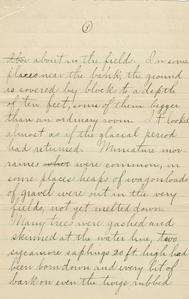 ①
about in the fields. In some
places near the bank, the ground
is covered by blocks to a depth
of ten feet, some of them bigger
than an ordinary room. It looks
almost as if the glacial period
had returned. Miniature mo-
raines were common, in
some places heaps of wagonloads
of gravel were out in the very
fields, not yet melted down.
Many trees were gashed and
skinned at the water line, two
sycamore saplings 20 ft. high had
been borne down and every bit of
bark on even the twigs rubbed